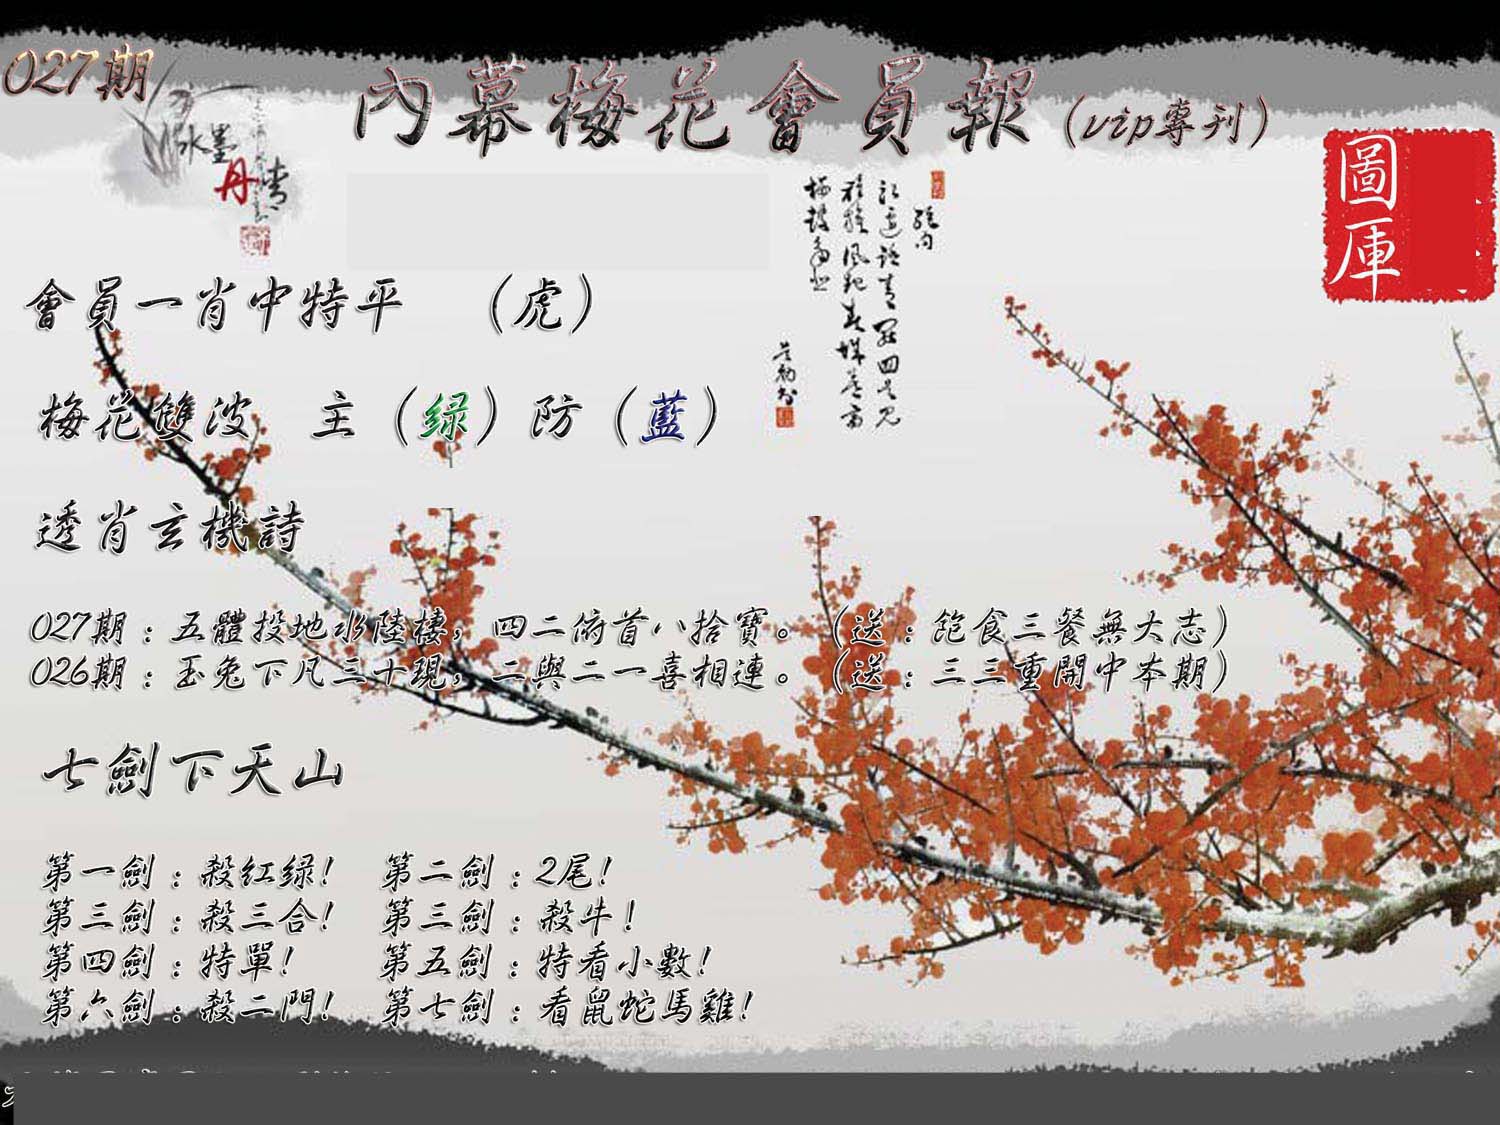 027期
內幕梅花會員報（vip專刊）
水墨
丹青
圖庫
會員一肖中特平　（虎）
梅花雙波　主（绿）防（藍）
透肖玄機詩
027期：五體投地水陸棲，四二俯首八拾寶。（送：飽食三餐無大志）
026期：玉兔下凡三十現，二與二一喜相連。（送：三三重開中本期）
七劍下天山
第一劍：殺紅绿！　第二劍：2尾！
第三劍：殺三合！　第三劍：殺牛！
第四劍：特單！　第五劍：特看小數！
第六劍：殺二門！　第七劍：看鼠蛇馬雞！